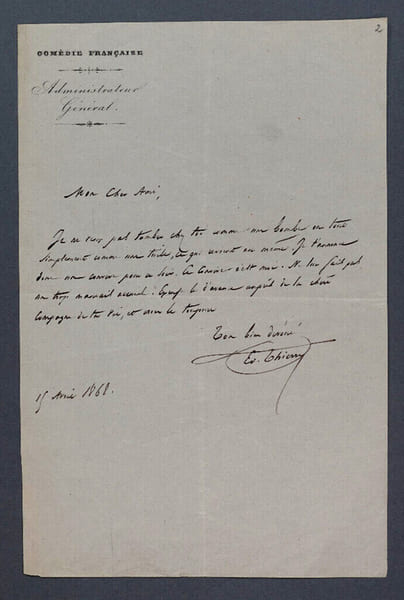 2
COMÉDIE FRANÇAISE
Administrateur
Général.
Mon Cher Ami,
Je ne veux pas tomber chez toi comme une bombe ou tout
simplement comme une tuile, ce qui revient au même. Je t'annonce
donc un convive pour ce soir. Le Convive c'est moi. Ne lui fais pas
un trop mauvais accueil. d'avance auprès de ta chère
Compagne de ta vie, et crois le toujours
Ton bien dévoué
Ed. Thierry
15 Avril 1868.